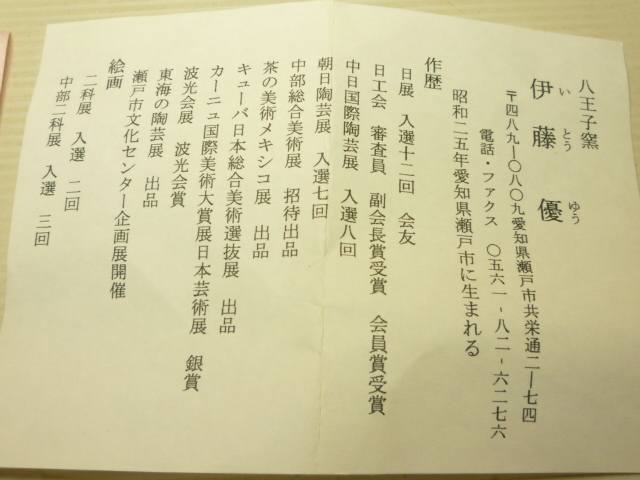 八王子窯
伊藤　優
いとう　ゆう
〒四八九―〇八〇九愛知県瀬戸市共栄通二―七四
電話・ファクス　〇五六一-八二-六二七六
昭和二五年愛知県瀬戸市に生まれる
作歴
日展　入選十二回　会友
日工会　審査員　副会長賞受賞　会員賞受賞
中日国際陶芸展　入選八回
朝日陶芸展　入選七回
中部総合美術展　招待出品
茶の美術メキシコ展　出品
キューバ日本総合美術選抜展　出品
カーニュ国際美術大賞展日本芸術展　銀賞
波光会展　波光会賞
東海の陶芸展　出品
瀬戸市文化センター企画展開催
絵画
二科展　入選　二回
中部二科展　入選　三回